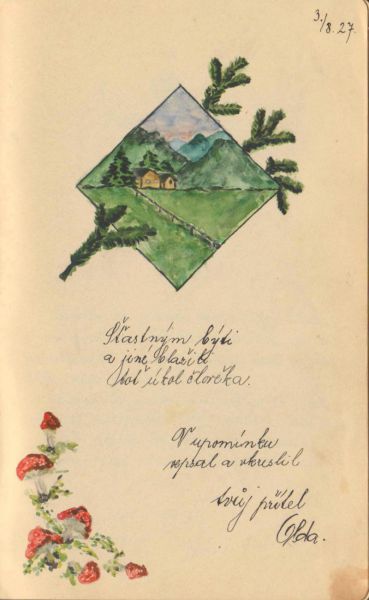 3./8.27.
Šťastným býti
a jiné blažiti
toť úkol člověka.
V upomínku
vepsal a vkreslil
tvůj přítel
Olda.